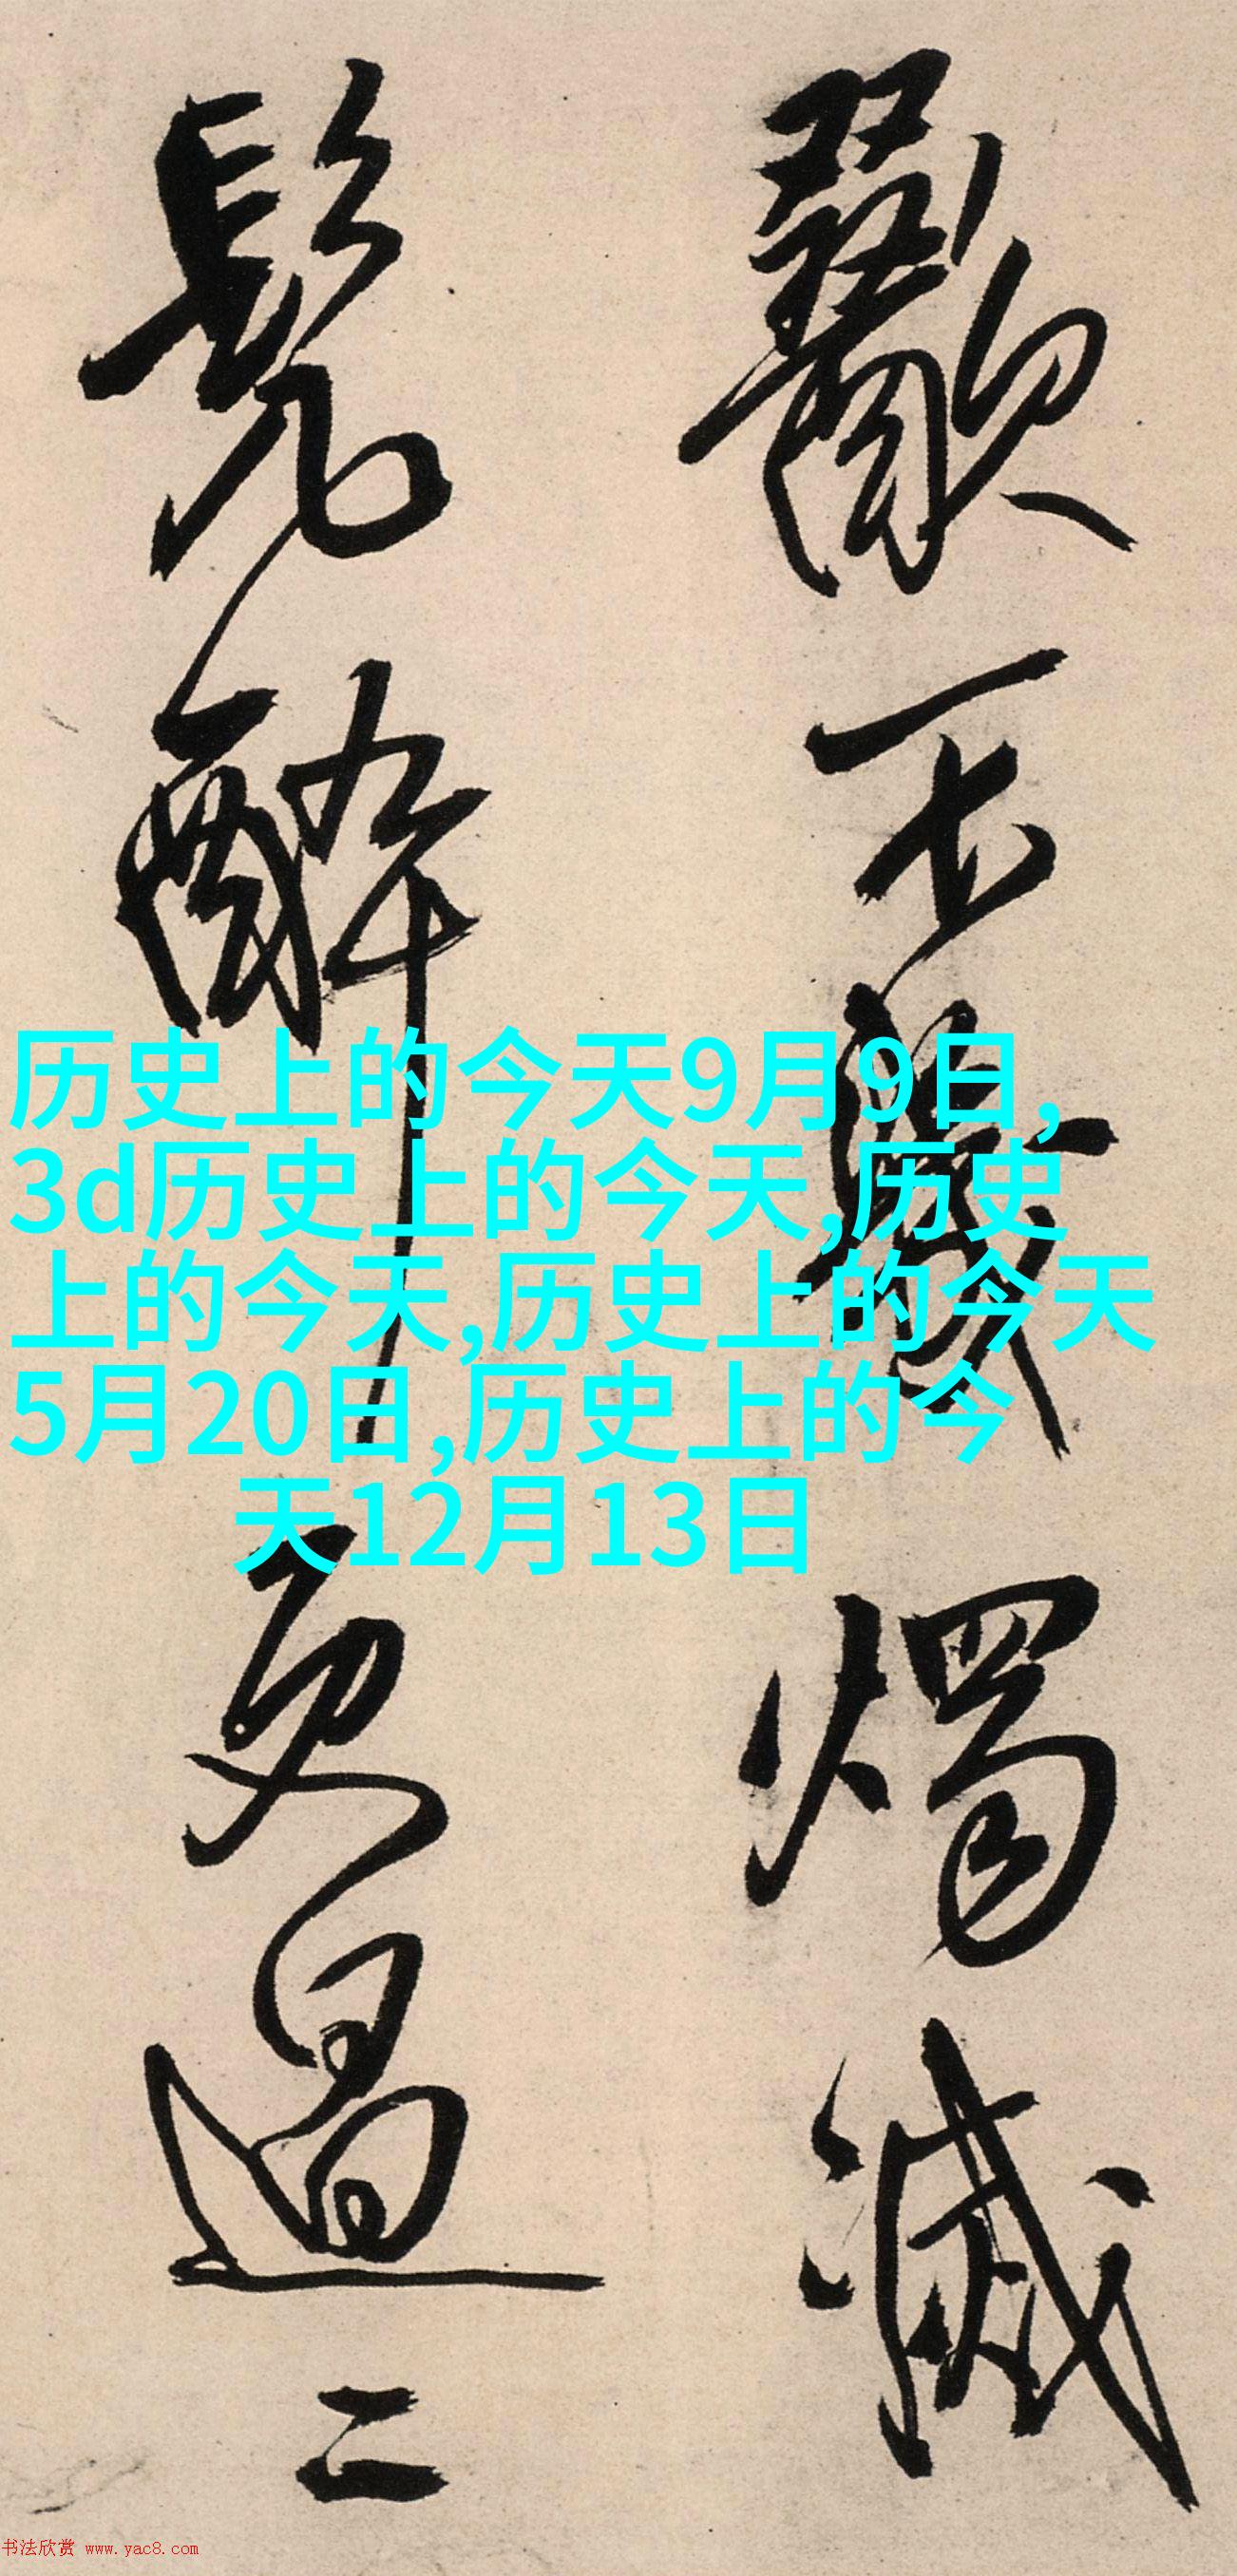 歠不厭燭滅
髡醉更過二
历史上的今天9月9日,
3d历史上的今天,历史
上的今天,历史上的今天
5月20日,历史上的今
天12月13日
书法欣赏 www.yac8.com